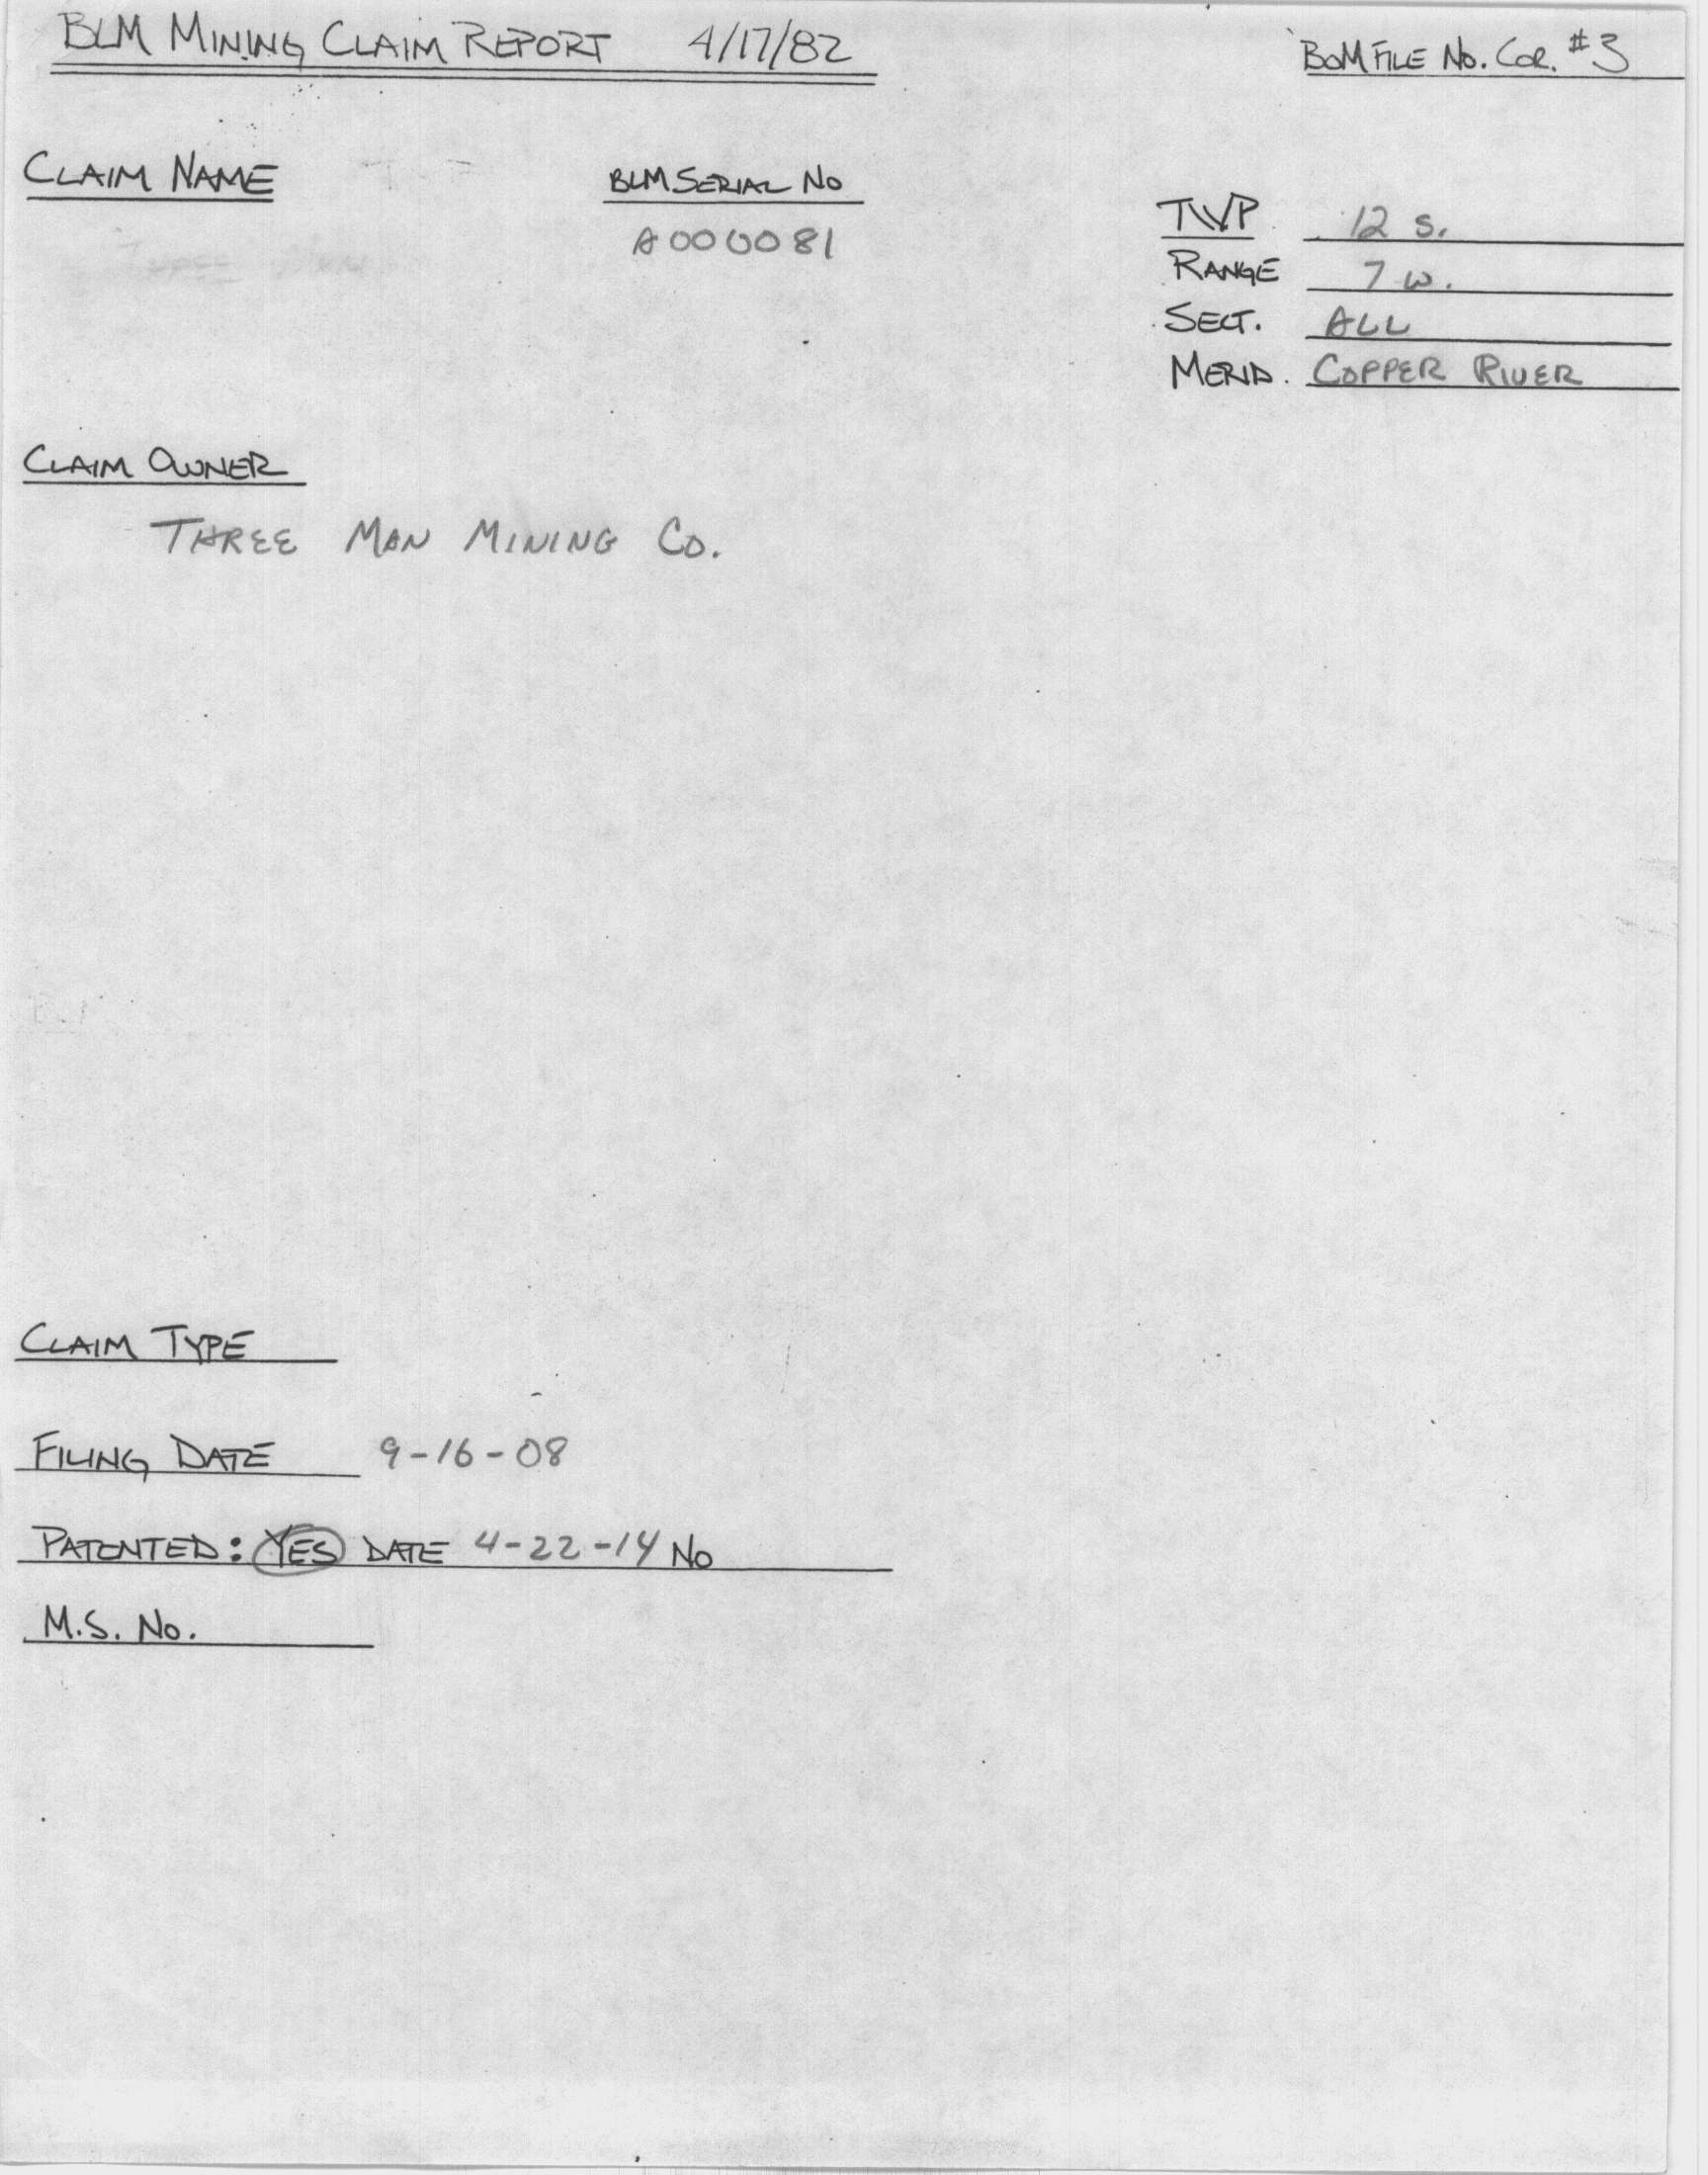 BLM MINING CLAIM REPORT 4/17/82
BOM FILE No. COR. #3
CLAIM NAME
BLM SERIAL No
A000081
TWP 12 S.
RANGE 7 W.
SECT. ALL
MERID. COPPER RIVER
CLAIM OWNER
THREE MAN MINING CO.
CLAIM TYPE
FILING DATE 9-16-08
PATENTED: YES DATE 4-22-14 No
M.S. No.